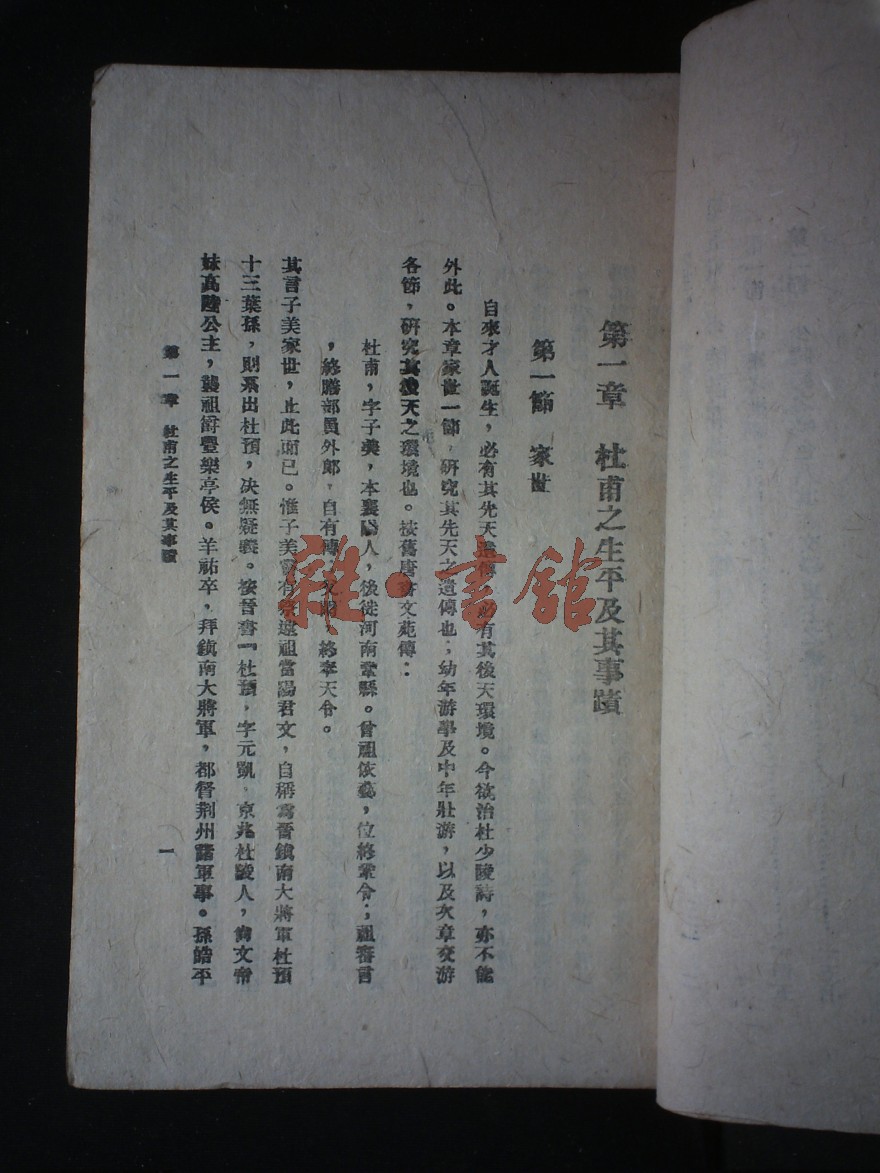 第一章　杜甫之生平及其事蹟
第一節　家世
自來才人誕生，必有其先天遺傳，必有其後天環境。今欲治杜少陵詩，亦不能
外此。本章家世一節，研究其先天之遺傳也；幼年游學及中年壯游，以及次章交游
各節，研究其後天之環境也。按舊唐書文苑傳：
杜甫，字子美，本襄陽人，後徙河南鞏縣。曾祖依藝，位終鞏令；祖審言
，終膳部員外郎，自有傳。父閑，終奉天令。
其言子美家世，止此而已。惟子美有祭遠祖當陽君文，自稱爲晉鎮南大將軍杜預
十三葉孫，則系出杜預，決無疑義。按晉書『杜預，字元凱，京兆杜陵人，尙文帝
妹高陸公主，襲祖爵豐樂亭侯。羊祜卒，拜鎮南大將軍，都督荆州諸軍事。孫皓平
第一章　杜甫之生平及其事蹟
一
雜·書館